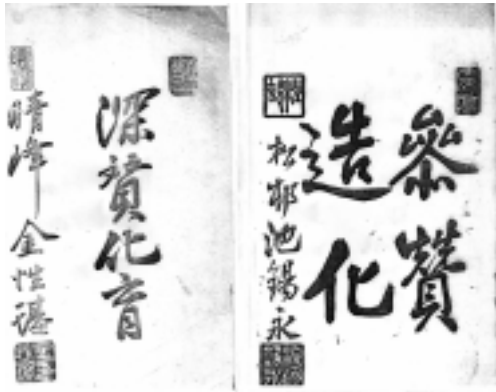 參贊
造化
松邨池錫永
深贊化育
晴峰金性